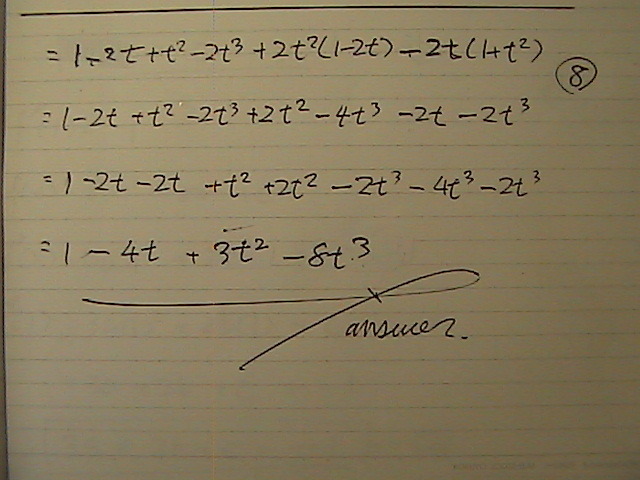 = 1-2t+t²-2t³+2t²(1-2t)-2t(1+t²)
⑧
= 1-2t+t²-2t³+2t²-4t³-2t-2t³
= 1-2t-2t+t²+2t²-2t³-4t³-2t³
= 1-4t+3t²-8t³
answer.